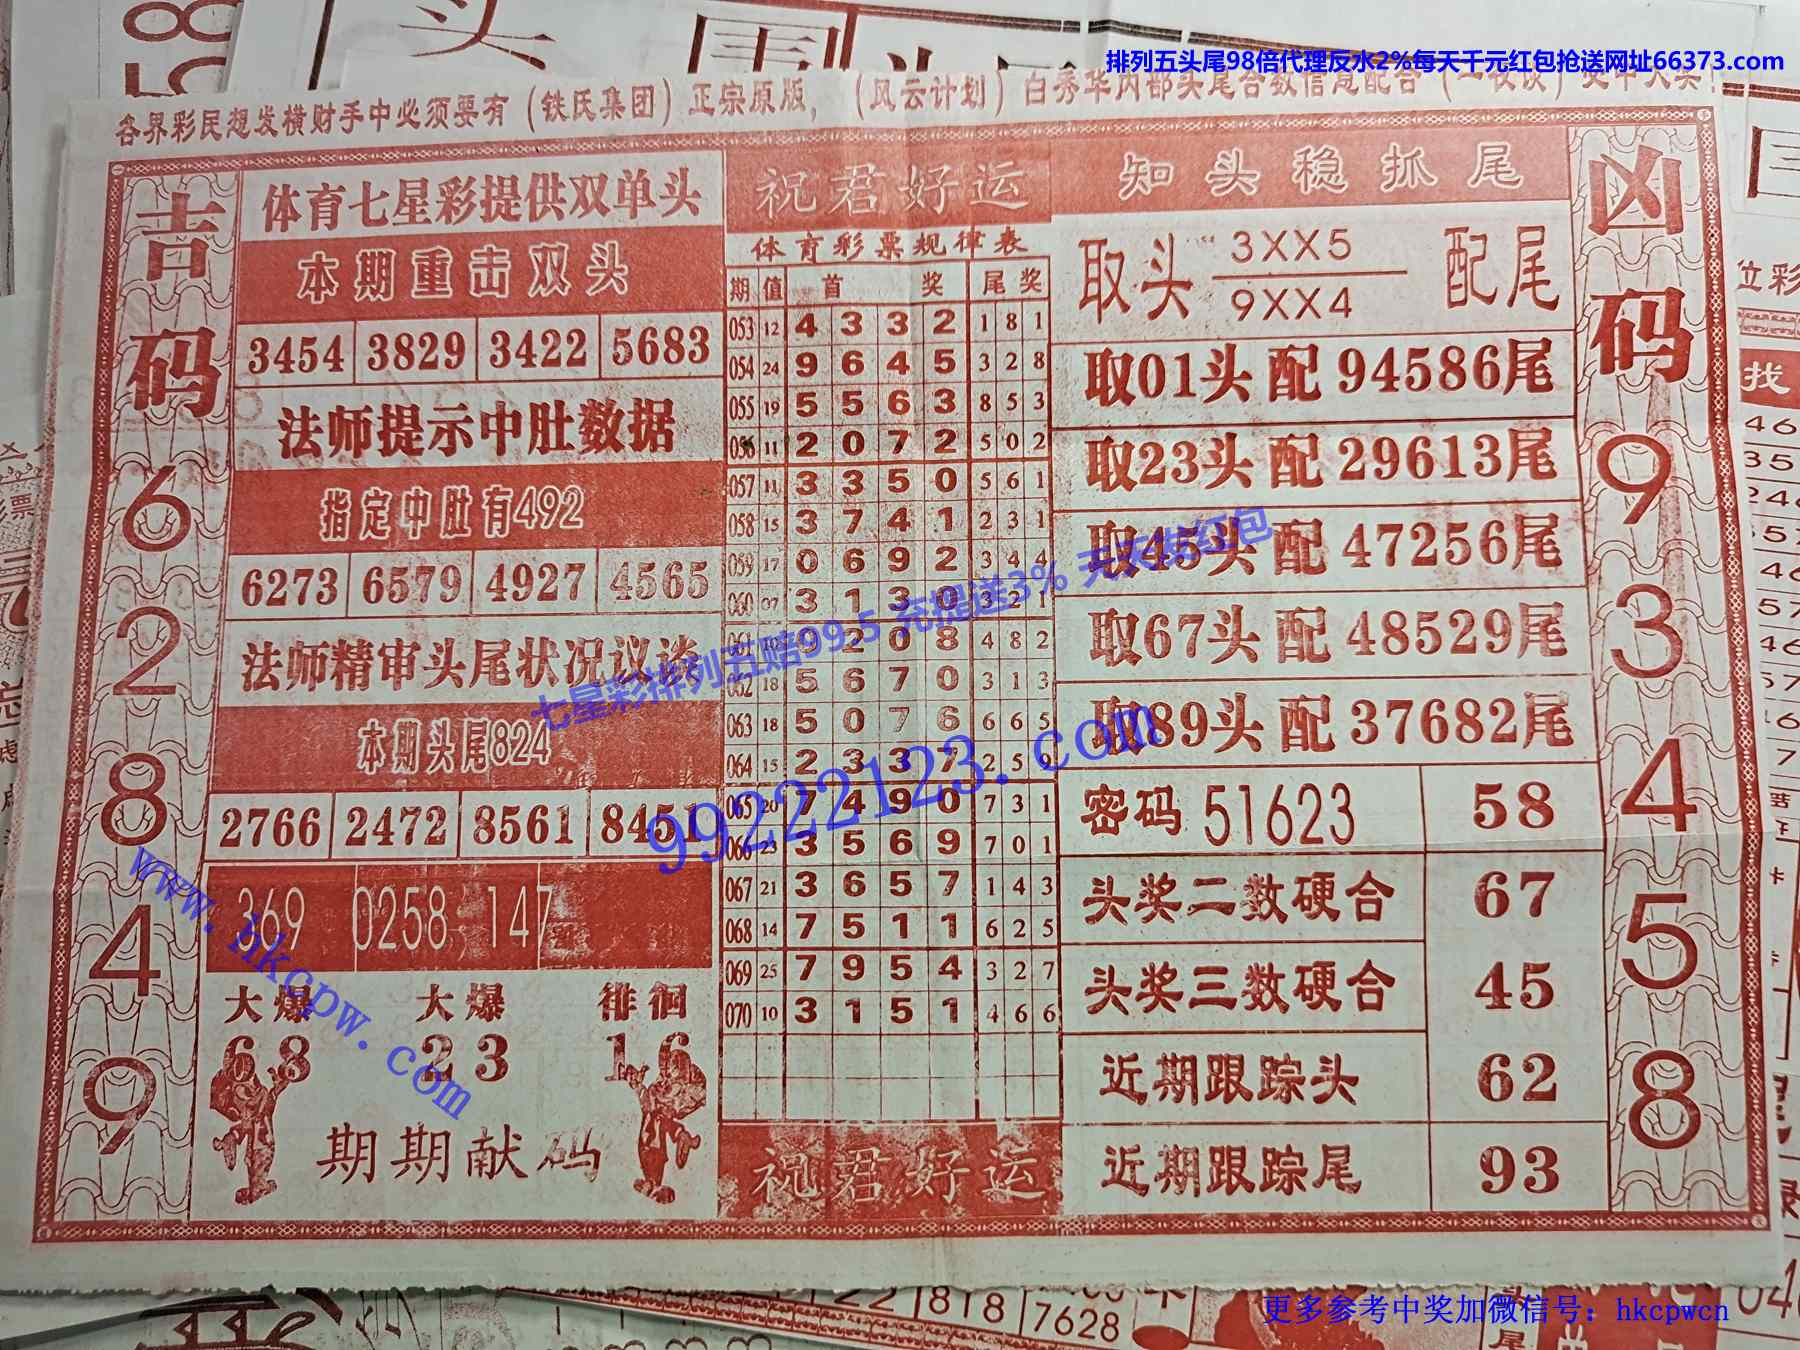 排列五头尾98倍代理反水2%每天千元红包抢送网址66373.com
各界彩民想发横财手中必须要有（铁氏集团）正宗原版，（风云计划）白秀华内部头尾合数信息配合
吉码
62849
体育七星彩提供双单头
本期重击双头
3454 3829 3422 5683
法师提示中肚数据
指定中肚有492
6273 6579 4927 4565
法师精审头尾状况议谈
本期头尾824
2766 2472 8561 8451
369 0258 147
大爆 大爆 徘徊
68 23 16
期期献码
祝君好运
体育彩票规律表
期 值 首奖 尾奖
053 12 4 3 3 2 1 8 1
054 24 9 6 4 5 3 2 8
055 19 5 5 6 3 8 5 3
056 11 2 0 7 2 5 0 2
057 11 3 3 5 0 5 6 1
058 15 3 7 4 1 2 3 1
059 17 0 6 9 2 3 4 4
060 07 3 1 3 0 3 2 1
061 9 2 0 8 4 8 2
062 18 5 6 7 0 3 1 3
063 18 5 0 7 6 6 6 5
064 15 2 3 3 7 2 5 9
065 20 7 4 9 0 7 3 1
066 23 3 5 6 9 7 0 1
067 21 3 6 5 7 1 4 3
068 14 7 5 1 1 6 2 5
069 25 7 9 5 4 3 2 7
070 10 3 1 5 1 4 6 6
祝君好运
知头稳抓尾
取头 3XX5 配尾
9XX4
取01头 配 94586尾
取23头 配 29613尾
取45头 配 47256尾
取67头 配 48529尾
取89头 配 37682尾
密码 51623 58
头奖二数硬合 67
头奖三数硬合 45
近期跟踪头 62
近期跟踪尾 93
凶码
93458
七星彩排列五赔99.5 充提送3% 天天发红包
99222123.com
www.hkcpw.com
818
7628
更多参考中奖加微信号：hkcpwcn